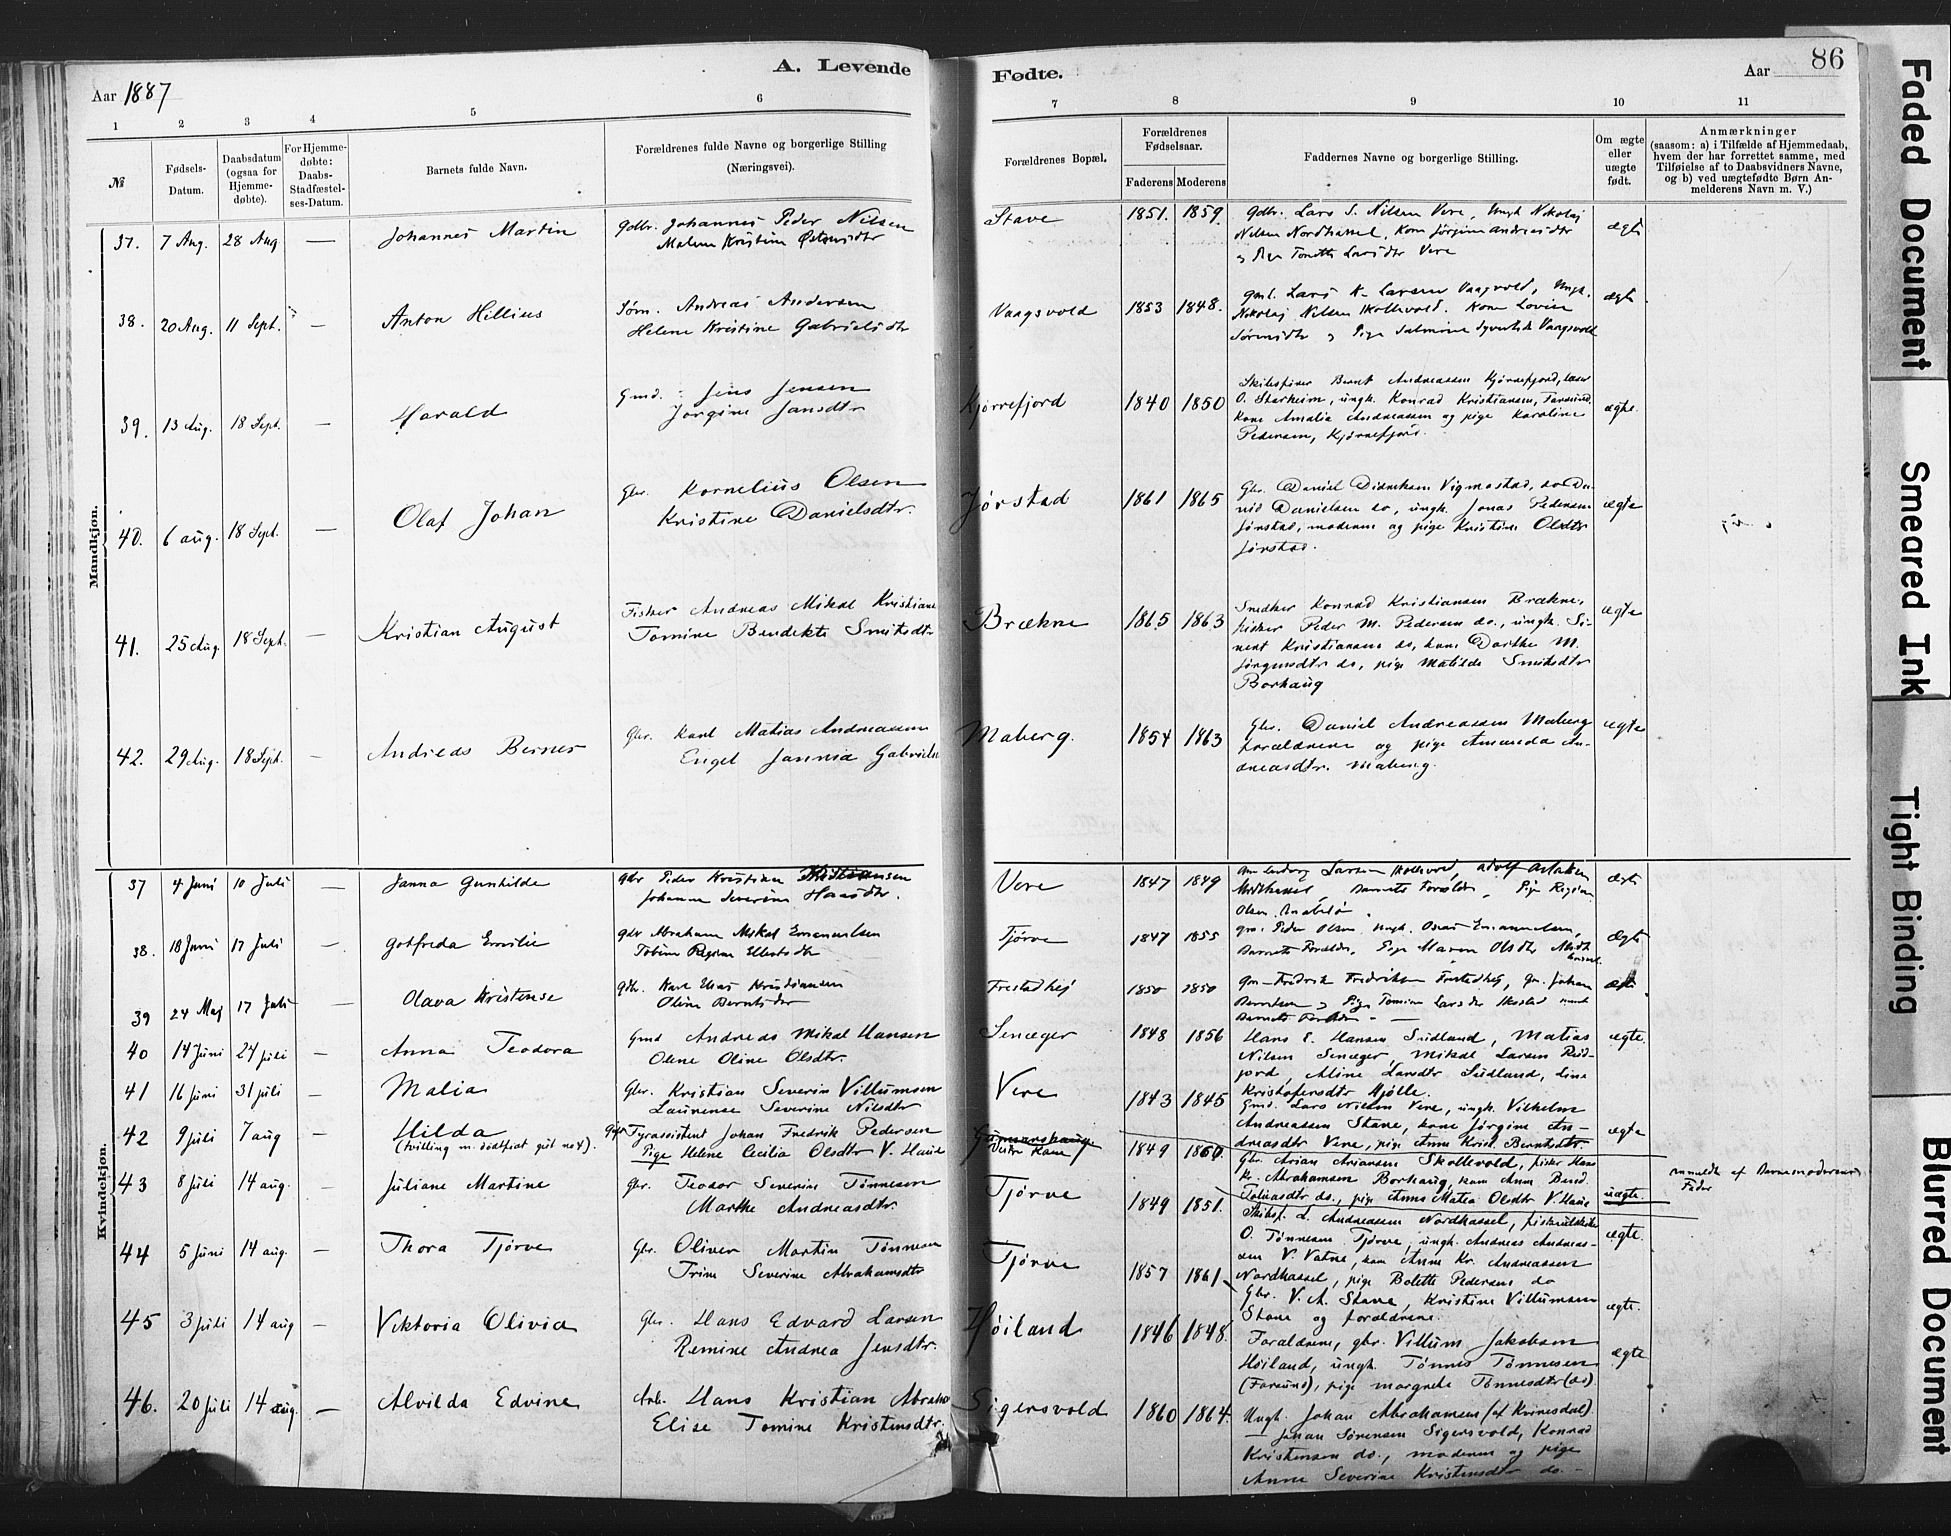 A. Levende
Aar 1887
1 2 3 4 5 6
№
Fødsels-
Datum.
Daabsdatum
(ogsaa for
Hjemme-
døbte).
For Hjemme-
døbte:
Daabs-
Stadfæstel-
ses-Datum.
Barnets fulde Navn.
Forældrenes fulde Navne og borgerlige Stilling
(Næringsvei).
Mandkjøn.
37. 7 Aug. 28 Aug — Johannes Martin Gdbr. Johannes Peder Nilsen
38. 20 Aug. 11 Sept. — Anton Hellius Andreas Andersen
Helene Kristine Gabrielsdtr
39. 13 Aug. 18 Sept. — Harald Gmd. Jens Jensen
Jorgine Jansdtr
40. 6 aug. 18 Sept. — Olaf Johan Gbr. Kornelius Olsen
Kristine Danielsdtr.
41. 25 Aug. 18 Sept. — Kristian August Fisker Andreas Mikal Kristians
Tomine Bendikte
42. 29 Aug. 18 Sept. — Andreas Berner Gbr. Karl Matias Andreassen
Engel Jannia Gabriels
Kvindekjøn.
37 4 Juni 10 Juli — Janna Gunhilde gbr Peder Kristian
Johanne Severine Hansdtr.
38. 18 Juni 17 Juli — Gotfreda Emilie gbr Abraham Mikal Emanuelsen
Tobine Regine
39 24 Maj 17 Juli — Olava Kristense gdb. Karl Elias Kristiansen
Oline Berntsdtr
40 14 Juni 24 juli — Anna Teodora Gmd Andreas Mikal Hansen
Olene Oline Olsdtr.
41 16 juni 31 juli — Malia Gbr. Kristian Severin Villumsen
Laurense Severine Nilsdtr
42 9 juli 7 aug — Hilda Fyrassistent Johan Fredrik Pedersen
(tvilling m. dødfødt gut no 4). Pige Helene Cecilia Olsdtr V. Haue
43 8 juli 14 aug. — Juliane Martine Gbr. Teodor Severin Tønnesen
Marthe Andreasdtr.
44 5 juni 14 aug. — Thora Tjørve Gbr. Oliver Martin Tønnesen
Trine Severine Abrahamsdtr
45 3 juli 14 aug — Viktoria Olivia Gbr. Hans Edvard Larsen
Remine Andrea Jensdtr.
46. 20 juli 14 aug. — Alvilda Edvine Arb. Hans Kristian Abrahams
Elise Tomine Kristensdtr.
Fødte.
Aar 86
7 8 9 10 11
Forældrenes Bopæl.
Forældrenes
Fødselsaar.
Faderens Moderens
Faddernes Navne og borgerlige Stilling.
Om ægte
eller
uægte
født.
Anmærkninger
(saasom: a) i Tilfælde af Hjemmedaab,
hvem der har forrettet samme, med
Tilføielse af to Daabsvidners Navne,
og b) ved uægtefødte Børn An-
melderens Navn m. V.)
Stave 1851. 1859. Gdbr. Lars S. Nilsen Vere, Ungk Nikolaj
Nilsen Nordhassel, Kone Jørgine Andreasdtr
Larsdtr Vere
ægte
Vaagsvold 1853 1848. Lars K. Larsen Vaagsvold, Ungk.
Nikolaj Nilsen Skollevold. Kone Lovise
Vaagsvold
ægte
Kjørrefjord 1840 1850 Bernt Andreassen Kjørrefjord, læser
O. Starheim, ungk. Konrad Kristiansen,
Kone Amalia Andreassen og pige Karoline
Pedersen, Kjørrefjord.
ægte.
Jørstad 1861 1865 Gbr. Daniel Vigmostad,
Danielsen do, ungk. Jonas Pedersen
Jørstad, moderen og pige Kristine Olsdtr
Jørstad.
ægte
Brækne 1865 1863 Snedker Konrad Kristiansen Brækne,
fisker Peder M. Pedersen do., ungk. Si-
vert Kristiansen do, kone Dorthe M.
Jørgensdtr do, pige Matilde
Borhaug
ægte
Maberg. 1854 1863 Gbr. Daniel Andreassen Maberg
forældrene og pige Amanda An-
dreasdtr. Maberg.
ægte
Vere 1847 1849 Larsen Skollevold, Adolf
Pige Regine
Olsen
ægte
Tjørve 1847 1855 Peder Olsen, Ungk. Emanuelsen,
Barnets Forældre, Pige Maren Olsdtr
ægte
Frestadhej 1850 1850 Fredrik Fredriksen Frestadhej, Johan
Berntsen Pige Tomine Larsdtr
Barnets Forældre —
ægte
Senæger 1848 1856 Hans E. Hansen Sudland, Matias
Nilsen Senæger, Mikal Larsen
Aline Larsdtr Sudland,
Kristofersdtr Hjølle.
ægte.
Vere 1843 1845 Gmd. Lars Nilsen Vere, ungk. Vilhelm
Andreassen Stave, kone Jørgine An-
dreasdtr Vere, pige Anne Krist. Berntsdtr.
ægte
Vestre Haue 1849 1860. Gbr. Arian Ariansen Skollevold, fisker Hans
Kr. Abrahamsen Borhaug, kone Anne Bend.
Tobiasdtr do., pige Anne Matea Olsdtr V. Haue
uægte.
anmeldt af Barnemoderens
Fader
Tjørve 1849 1851. L. Andreassen Nordhassel,
O. Tønnesen Tjørve, ungk. Andreas Andreas-
sen V. Vatne, kone Anne Kr. Andreassen
Nordhassel, pige Bolette Pedersen do
ægte.
Tjørve 1857 1861 Gbr. V. A. Stave, Kristine Villumsen
Stave og forældrene.
ægte.
Høiland 1846 1848. Forældrene, gbr. Villum Jakobsen
Høiland, ungk. Tønnes Tønnesen
(Farsund), pige Margrete Tønnesdtr (do).
ægte
Sigersvold 1860 1864. Ungk. Johan Abrahamsen (af Kvinesdal).
— Johan Sørensen Sigersvold, Konrad
Kristensen do., moderen og pige
Anne Severine Kristensdtr do. —
Faded Document
Smeared Ink
Tight Binding
Blurred Document